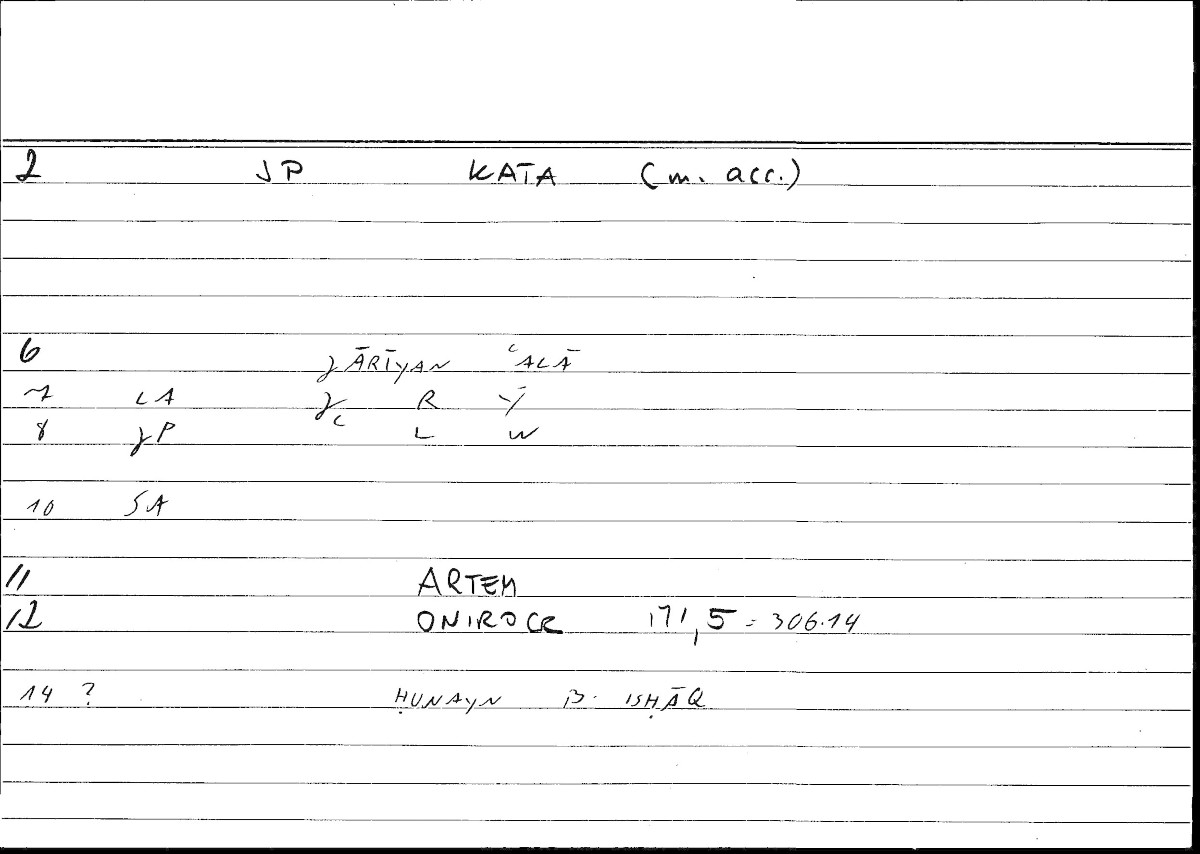 2 JP KATA (m. acc.)
6 JĀRIYAN ʿALĀ
7 LA Jc R Y
8 JP L W
10 SA
11 ARTEM
12 ONIROCR 171,5 = 306.14
14 ? ḤUNAYN B. ISḤĀQ